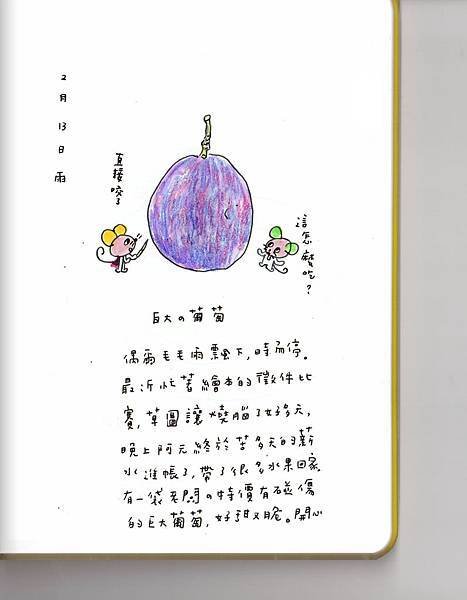 2月13日 雨
直接咬了
這怎麼吃？
巨大の葡萄
偶爾毛毛雨飄下,時而停。
最近忙著繪本的徵件比
賽,草圖讓燒腦了好多元,
晚上阿元終於苦多天的薪
水進帳了,帶了很多水果回家
有一袋老闆の特價有碰傷
的巨大葡萄,好甜又脆。開心